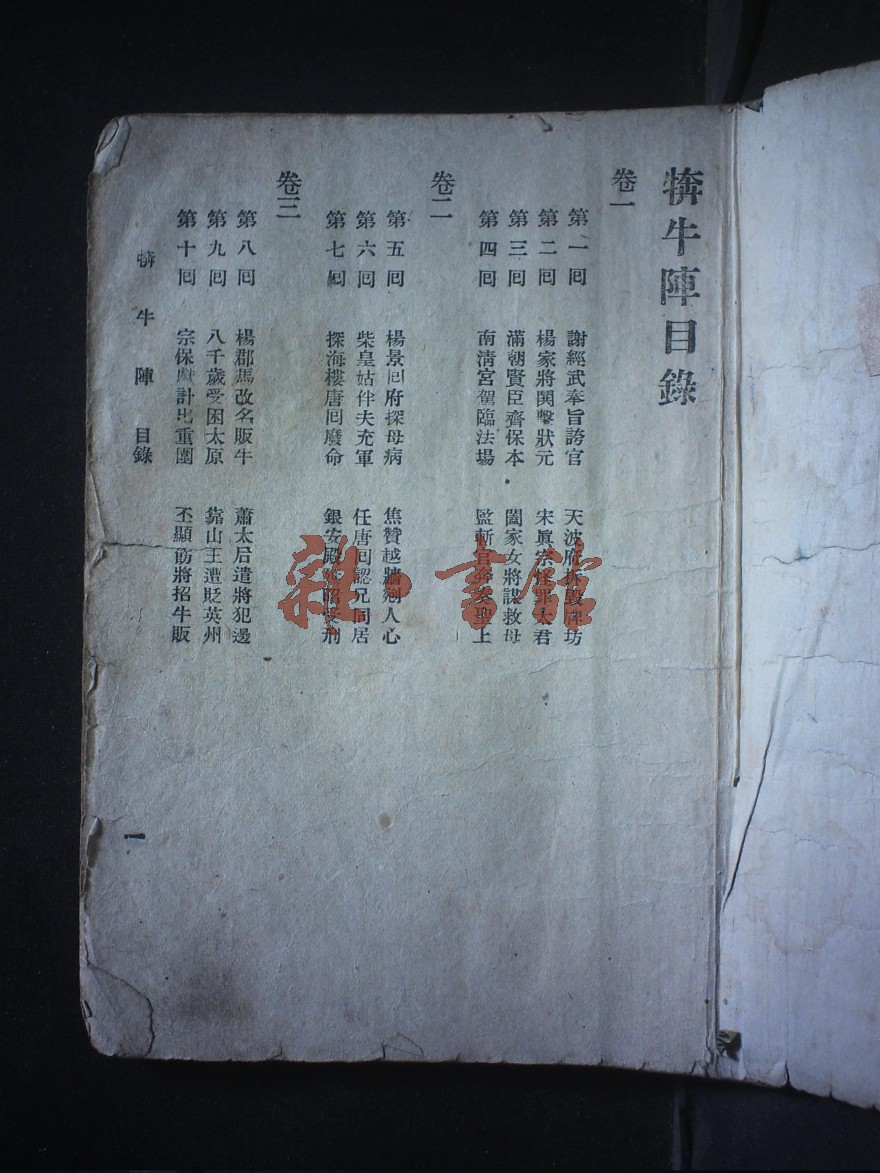 犇牛陣目錄
卷一
第一回 謝經武奉旨誇官 天波府拆毀牌坊
第二回 楊家將閔擊狀元 宋眞宗怪罪太君
第三回 滿朝賢臣齊保本 闔家女將謀救母
第四回 南淸宮駕臨法場 監斬官奔奏聖上
卷二
第五回 楊景回府探母病 焦贊越牆剜人心
第六回 柴皇姑伴夫充軍 任唐回認兄同居
第七回 探海樓唐回廢命 銀安殿 受刑
卷三
第八回 楊郡馬改名販牛 蕭太后遣將犯邊
第九回 八千歲受困太原 靠山王遭貶英州
第十回 宗保獻計出重圍 丕顯節將招牛販
牛陣 目錄
一
雜书館